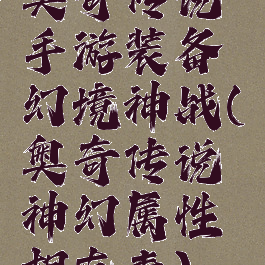 奥奇传说
手游装备
幻境神战(
奥奇传说
神幻属性
相克表)